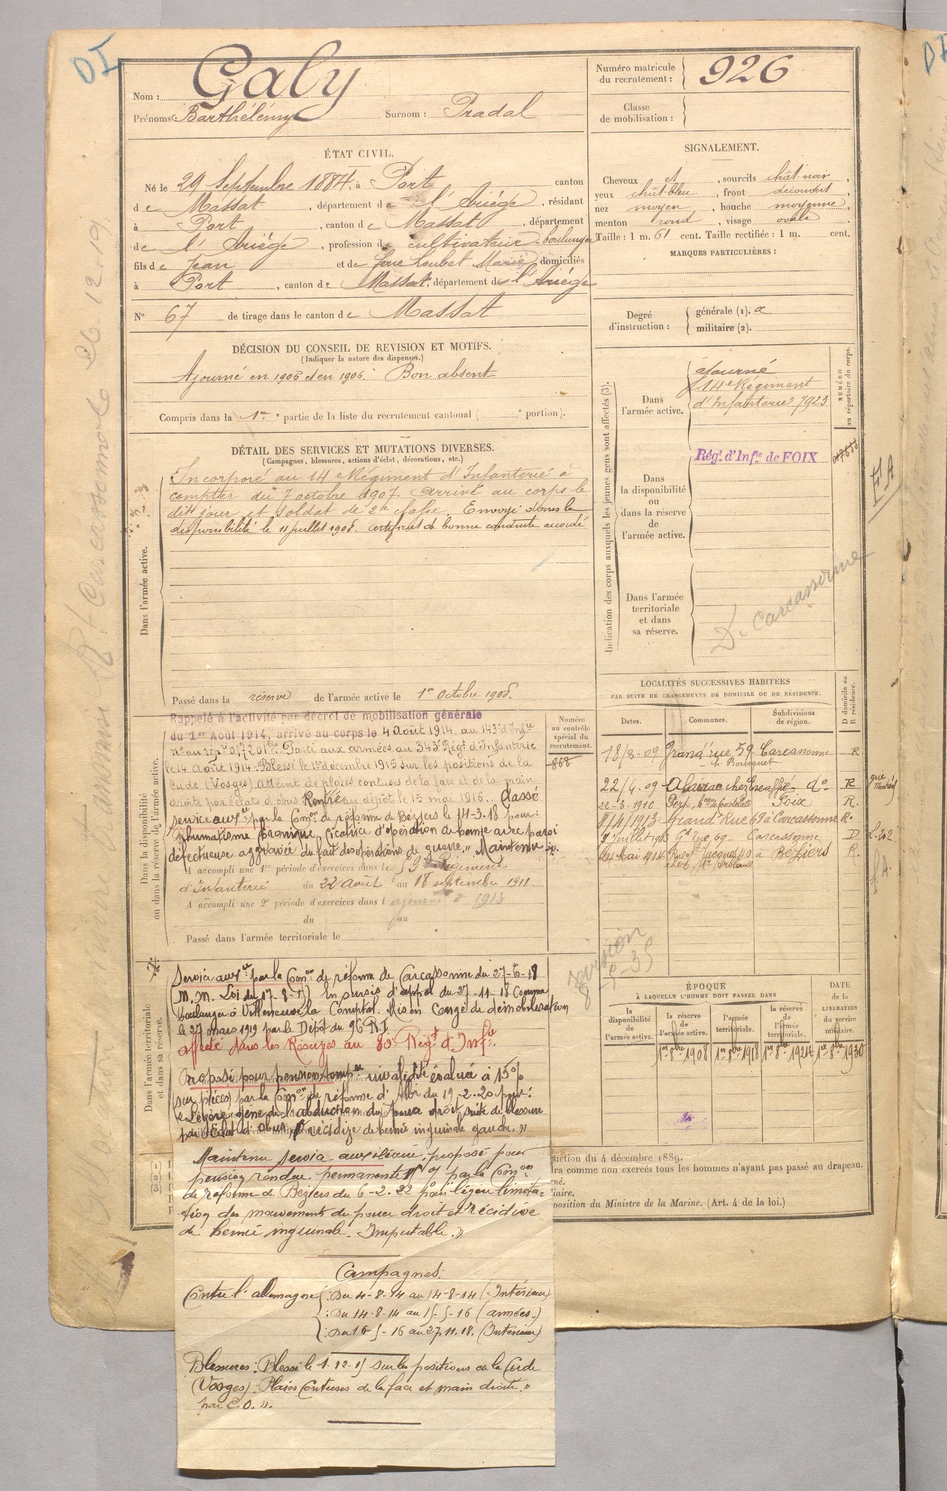 DI
Nom : Galy
Prénoms : Barthélémy Surnom : Pradal
Numéro matricule du recrutement : 926
Classe de mobilisation :
ÉTAT CIVIL.
Né le 29 Septembre 1884, à Port canton
de Massat, département de l'Ariège, résidant
à Port, canton de Massat, département
de l'Ariège, profession de cultivateur boulanger
fils de Jean et de Loubet Marie, domiciliés
à Port, canton de Massat, département de l'Ariège
N° 67 de tirage dans le canton de Massat
SIGNALEMENT.
Cheveux et , sourcils chât-noir,
yeux chât-bleu, front découvert,
nez moyen, bouche moyenne,
menton rond, visage ovale
Taille : 1 m. 61 cent. Taille rectifiée : 1 m. cent.
MARQUES PARTICULIÈRES :
Degré d'instruction :
générale (1). 2
militaire (2).
DÉCISION DU CONSEIL DE REVISION ET MOTIFS.
(Indiquer la nature des dispenses.)
Ajourné en 1905 et en 1906. Bon absent
Compris dans la 1re partie de la liste du recrutement cantonal ( e portion).
DÉTAIL DES SERVICES ET MUTATIONS DIVERSES.
(Campagnes, blessures, actions d'éclat, décorations, etc.)
Dans l'armée active.
Incorporé au 14e Régiment d'Infanterie à
compter du 7 octobre 1907. Arrivé au corps le
dit jour et soldat de 2e classe. Envoyé dans la
disponibilité le 11 juillet 1908. certificat de bonne conduite accordé
Passé dans la réserve de l'armée active le 1er Octobre 1908.
Indication des corps auxquels les jeunes gens sont affectés (3).
Dans l'armée active.
ajourné
14e Régiment
d'Infanterie 7923
NUMÉRO au répertoire du corps.
Dans la disponibilité ou dans la réserve de l'armée active.
Régt d'Infie de FOIX
Dans l'armée territoriale et dans sa réserve.
Dt Carcassonne
LOCALITÉS SUCCESSIVES HABITÉES
PAR SUITE DE CHANGEMENTS DE DOMICILE OU DE RÉSIDENCE.
Dates. Communes. Subdivisions de région. D domicile ou R résidence.
18/8-09 Grand'rue 59 Carcassonne R
22/4-09 do R
22-3-1910 Foix R.
2/4/1913 Grand'Rue 69 à Carcassonne R.
Carcassonne D
à Béziers R.
Dans la disponibilité ou dans la réserve de l'armée active.
Numéro au contrôle spécial du recrutement.
868
Rappelé à l'activité par décret de mobilisation générale
du 1er Août 1914, arrivé au corps le 4 Août 1914, au 143e d'Infie
Parti aux armées au 343e Régt d'Infanterie
le 14 août 1914. Blessé le 1er décembre 1915 sur les positions de la
Cude (Vosges) Atteint de plaies contuses de la face et de la main
droite par éclats d'obus Rentré au dépôt le 15 mai 1916. Classé
service auxre par la Comon de réforme de Béziers le 14-3-18 pour :
Rhumatisme chronique, cicatrice d'opération de hernie avec paroi
défectueuse aggravée du fait des opérations de guerre," Maintenu
A accompli une 1re période d'exercices dans le 9e Régiment
d'Infanterie du 22 août au 18 septembre 1911
A accompli une 2e période d'exercices dans l ajourné à 1913
du au
Passé dans l'armée territoriale le
revision
ÉPOQUE
À LAQUELLE L'HOMME DOIT PASSER DANS
la disponibilité de l'armée active. la réserve de l'armée active. l'armée territoriale. la réserve de l'armée territoriale. DATE de la LIBÉRATION du service militaire.
1er 8bre 1908 1er 8bre 1918 1er 8bre 1924 1er 8bre 1930
Dans l'armée territoriale et dans sa réserve.
Service auxre par la Comon de réforme de Carcassonne du 27-6-18
(M.M. Loi du 17-8-15) En sursis d'appel du 27-11-18 Comme
boulanger à Villeneuve la Comptal. Mis en Congé de démobilisation
le 27 mars 1919 par le Dépôt du 96 R.I.
affecté dans les Réserves au 80e Régt d'Infie.
Proposé pour pension invalidité évaluée à 15%
(sur pièces) par la Comon de réforme d'Albi du 19-2-20 pour :
"Légère gêne de l'abduction du pouce droit, suite de blessure
par éclat d'obus, récidive de hernie inguinale gauche."
Maintenu service auxiliaire, proposé pour
pension rendue permanente par la Comon
de réforme de Béziers du 6-2-22 pour légère limita-
tion des mouvements du pouce droit et récidive
de hernie inguinale. Imputable."
Campagnes:
Contre l'allemagne : Du 4-8-14 au 14-8-14 (Intérieur)
: Du 14-8-14 au 15-5-16 (armées.)
: Du 16-5-16 au 27.11.18. (Intérieur)
Blessures : Blessé le 1-12-15 sur les positions de la Cude
(Vosges) : Plaies Contuses de la face et main droite,"
par E.O.".
ction du 4 décembre 1889.
ra comme non exercés tous les hommes n'ayant pas passé au drapeau.
né.
iaire.
position du Ministre de la Marine. (Art. 4 de la loi.)